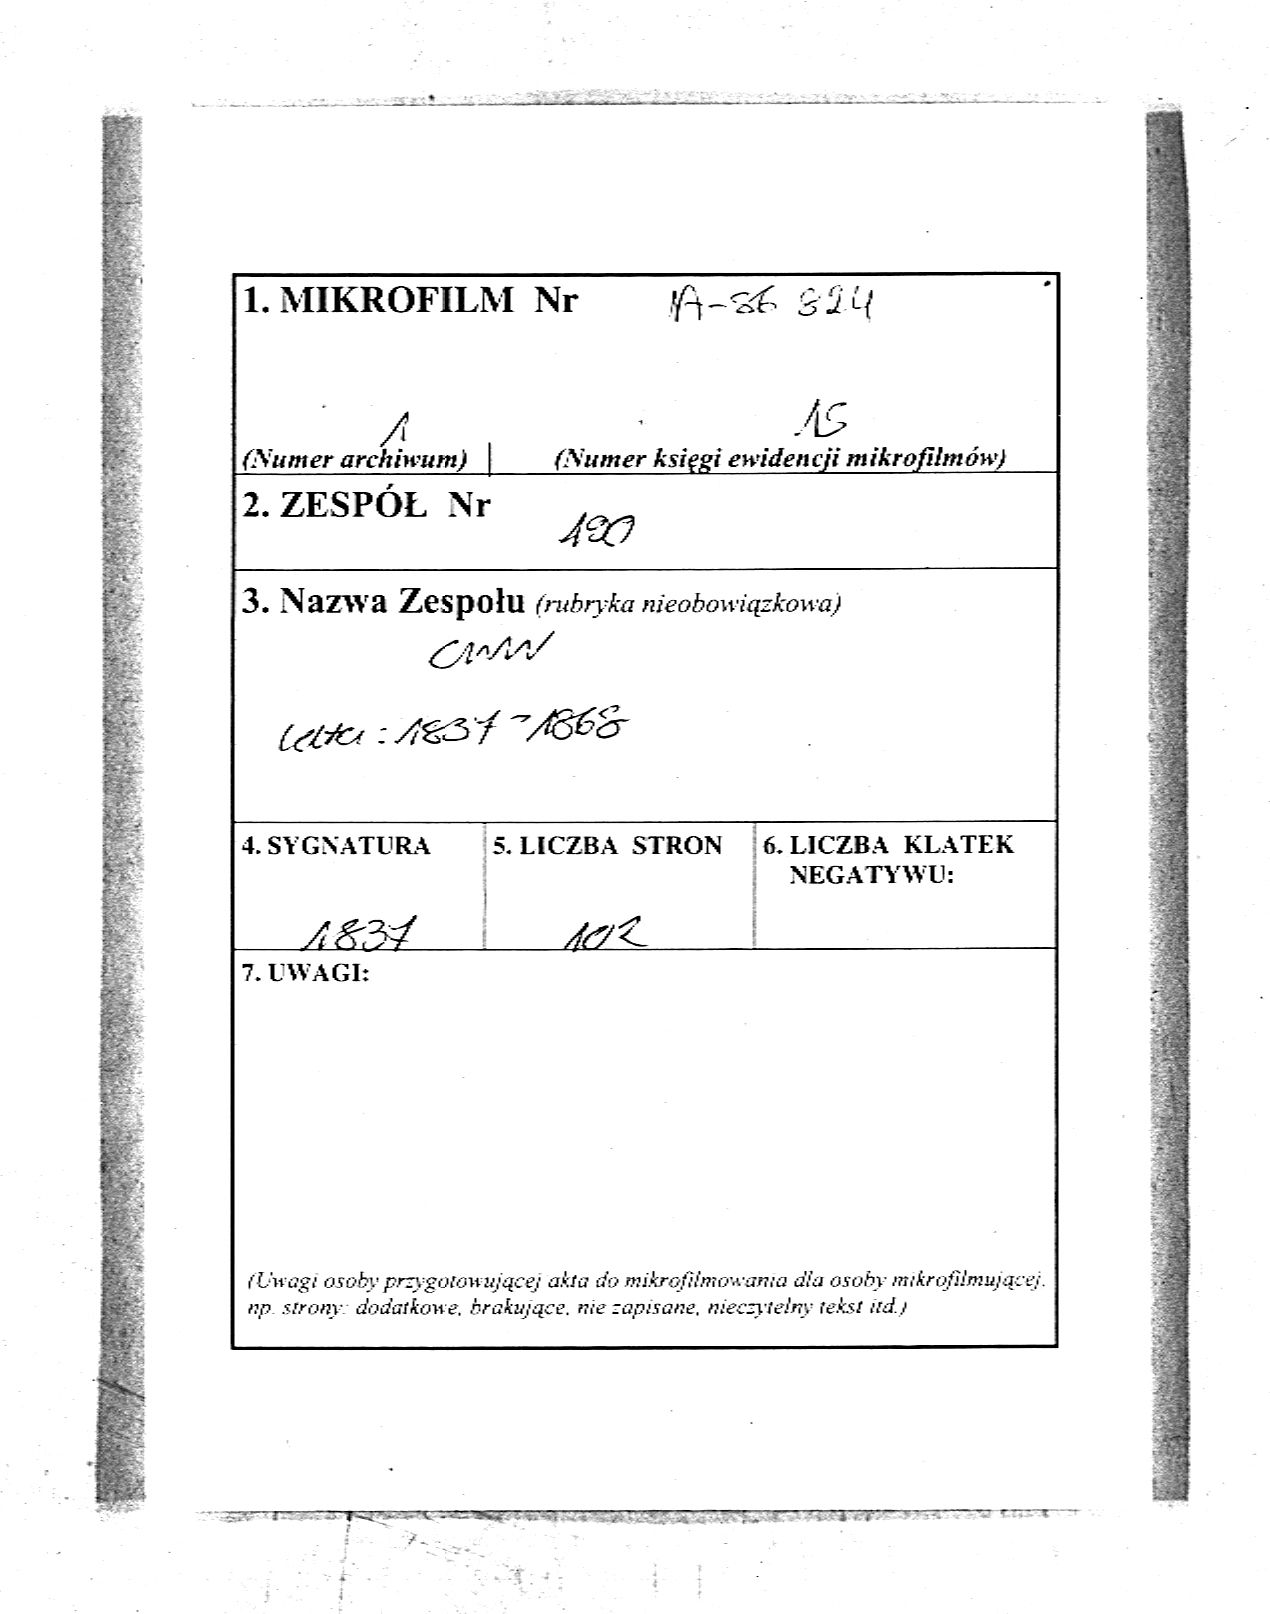 1. MIKROFILM Nr
1 15
(Numer archiwum) | (Numer księgi ewidencji mikrofilmów)
2. ZESPÓŁ Nr
190
3. Nazwa Zespołu (rubryka nieobowiązkowa)
CWW
lata : 1837 - 1868
4. SYGNATURA
1837
5. LICZBA STRON
102
6. LICZBA KLATEK
NEGATYWU:
7. UWAGI:
(Uwagi osoby przygotowującej akta do mikrofilmowania dla osoby mikrofilmującej,
np. strony: dodatkowe, brakujące, nie zapisane, nieczytelny tekst itd.)